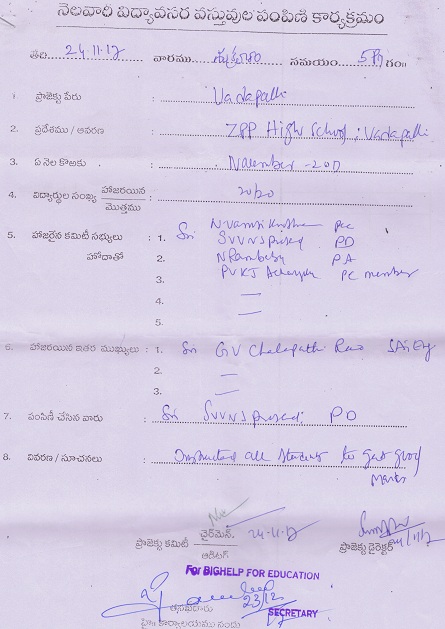 నెలవారి విద్యావసర వస్తువుల పంపిణి కార్యక్రమం
తేది 24.11.17 వారము శుక్రవారం సమయం 5 PM గం॥
1. ప్రాజెక్టు పేరు : Vadapalli
2. ప్రదేశము / ఆవరణ : ZPP High School, Vadapalli
3. ఏ నెల కొఱకు : November - 2017
4. విద్యార్థుల సంఖ్య హాజరయిన / మొత్తము : 20/20
5. హాజరైన కమిటీ సభ్యులు : 1. Sri N Vamsi Krishna PCC
హోదాతో 2. SVVNS Prasad PD
3. N Rambabu PA
PVKJ PC member
4. —
5.
6. హాజరయిన ఇతర ముఖ్యులు : 1. Sri GV Chalapathi Rao SA Eng
2. —
3. —
7. పంపిణీ చేసిన వారు : Sri SVVNS Prasad, PD
8. వివరణ / సూచనలు : Instructed all students to get good
Marks
ప్రాజెక్టు కమిటీ చైర్‌మెన్. 24-11-17 ప్రాజెక్టు డైరెక్టర్
ఆడిటర్
For BIGHELP FOR EDUCATION
23/12
SECRETARY
హై॥ కార్యాలయము నందు